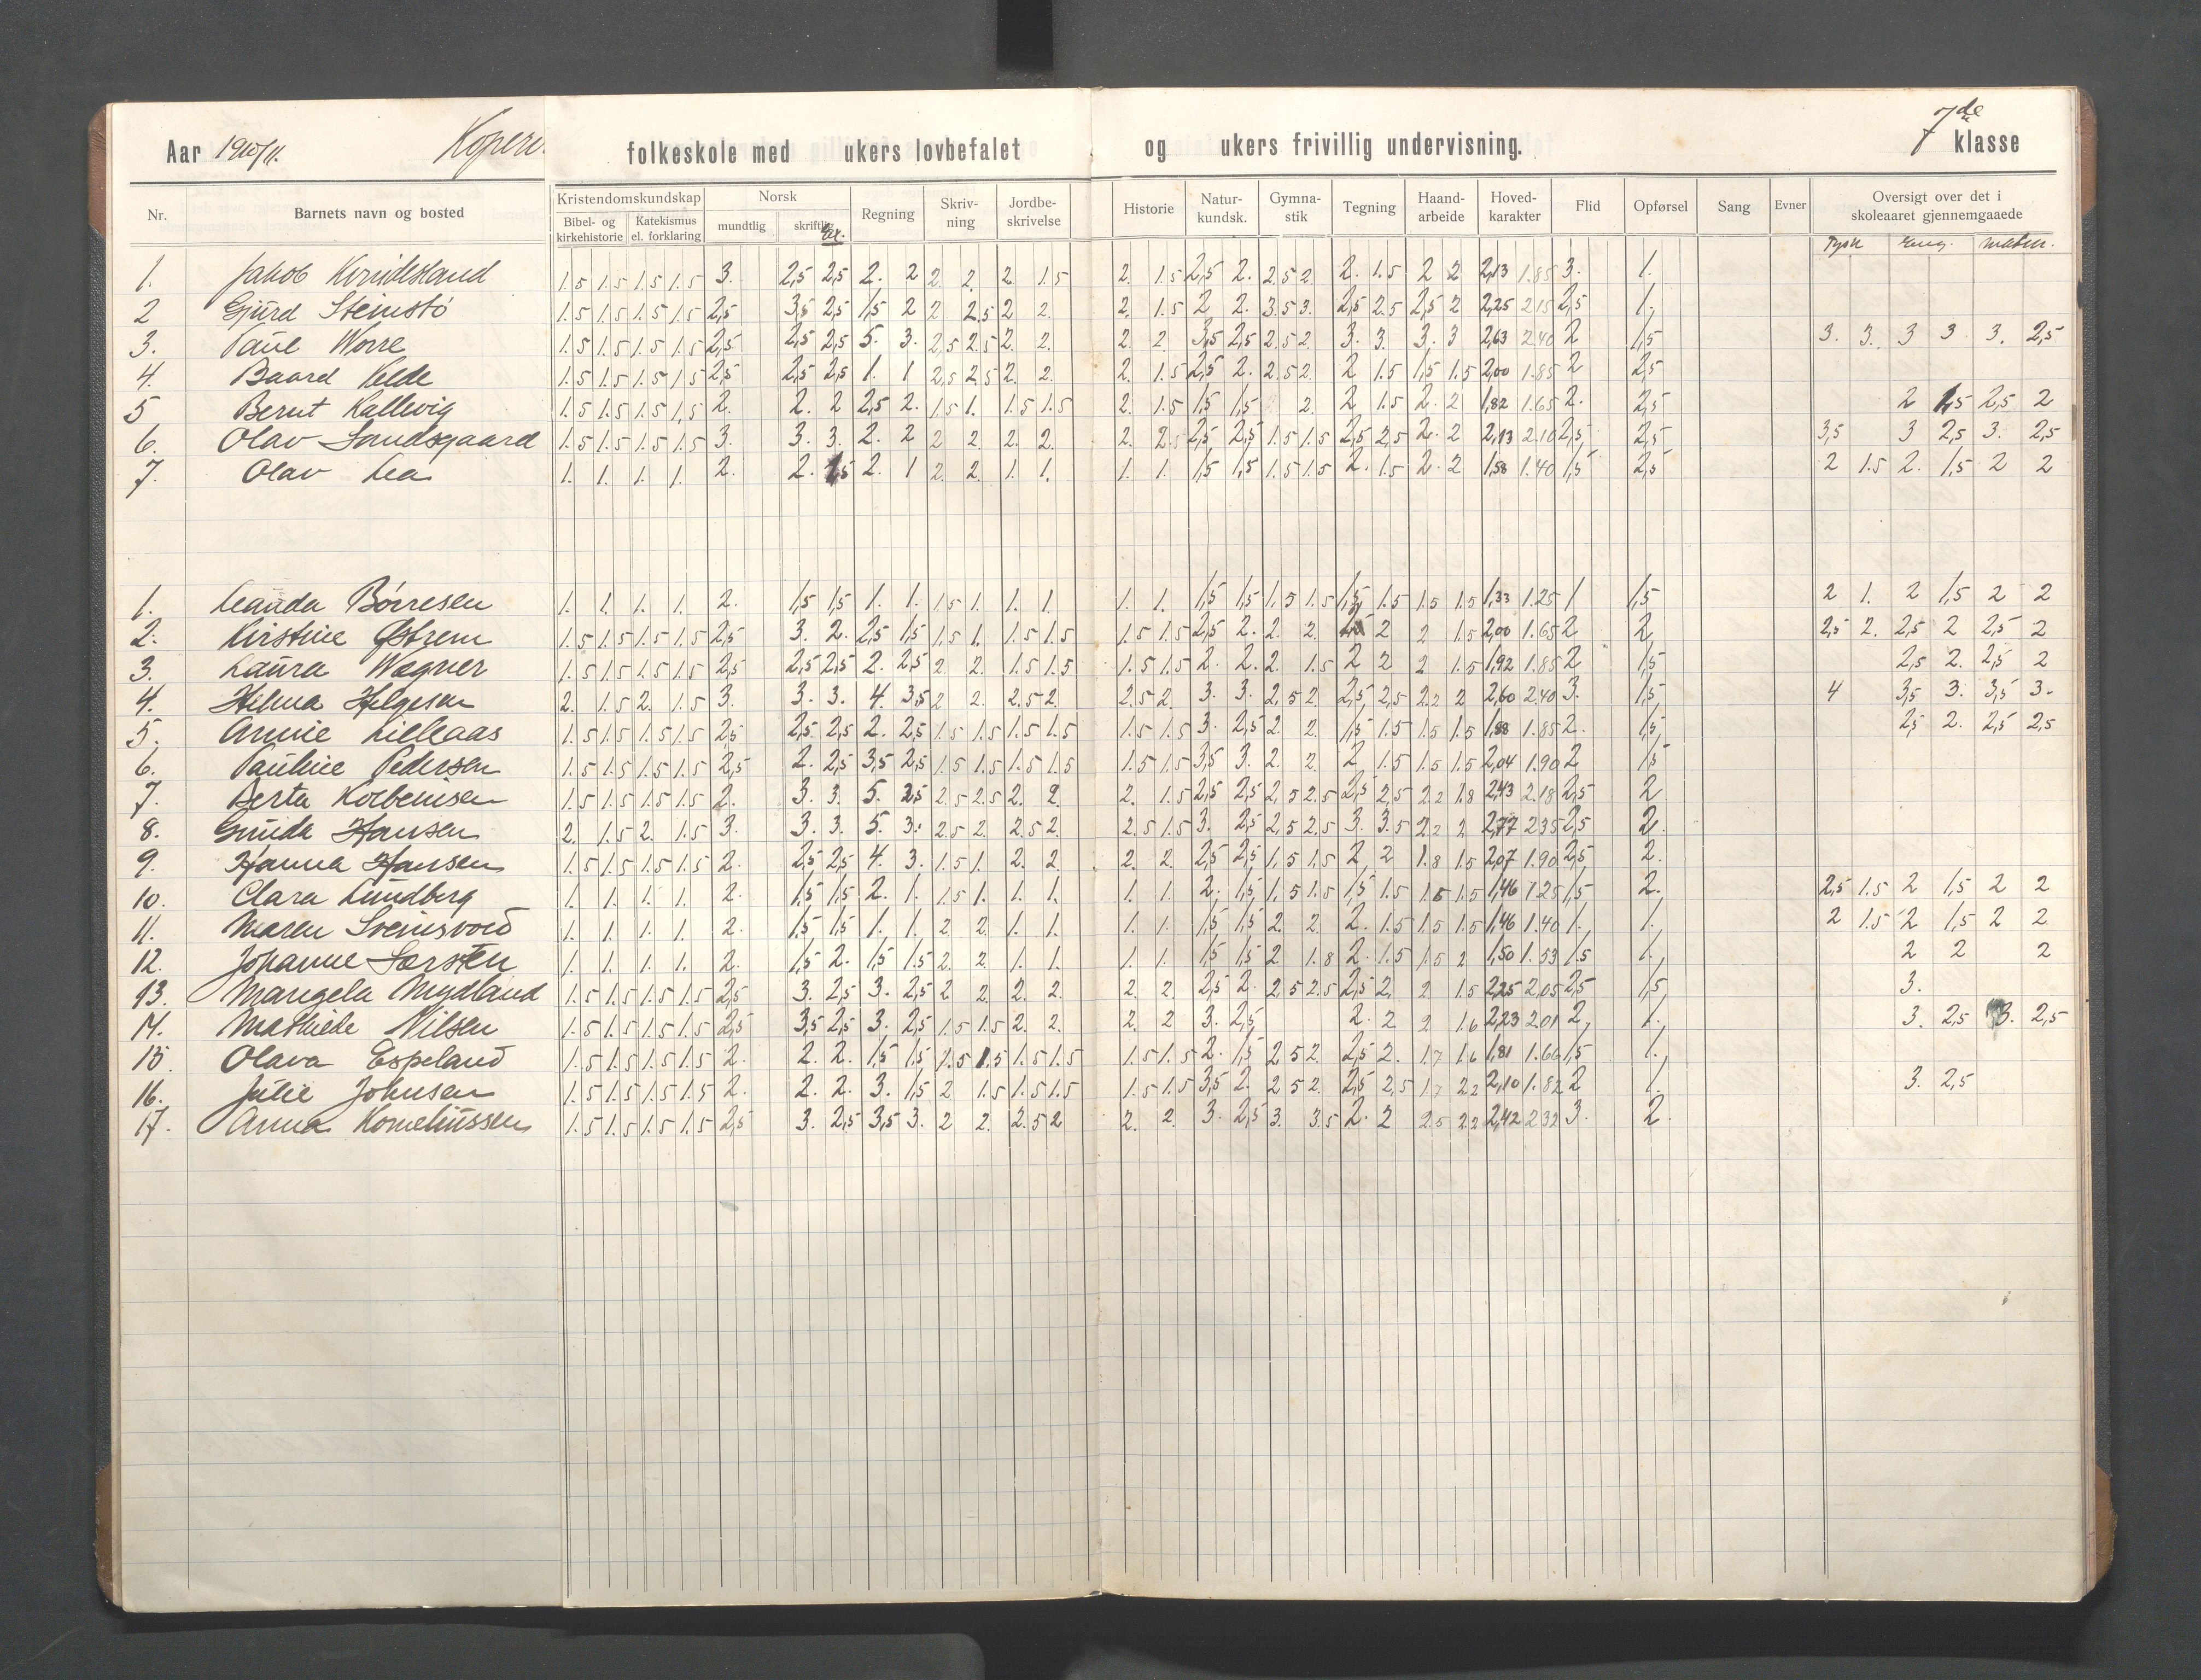 Aar 1910/11. Koperv folkeskole med ukers lovbefalet og ukers frivillig undervisning. 7de klasse
Nr. Barnets navn og bosted Kristendomskundskap Bibel- og kirkehistorie Katekismus el. forklaring Norsk mundtlig skriftlig Ex. Regning Skriv-ning Jordbe-skrivelse Historie Natur-kundsk. Gymna-stik Tegning Haand-arbeide Hoved-karakter Flid Opførsel Sang Evner Oversigt over det i skoleaaret gjennemgaaede
Tysk Eng. Matem.
1. Jakob 1.5 1.5 1.5 1.5 3. 2,5 2,5 2. 2 2 2. 2 1.5 2. 1.5 2,5 2. 2.5 2. 2. 1.5 2 2 2,13 1.85 3. 1.
2 Gjurd Steinstø 1.5 1.5 1.5 1.5 2,5 3,5 2,5 1,5 2 2 2.5 2 2. 2. 1.5 2 2. 3.5 3. 2,5 2.5 2,5 2 2,25 2.15 2,5 1.
3. Paul Worre 1.5 1.5 1.5 1.5 2,5 2,5 2,5 5. 3. 2.5 2.5 2. 2. 2. 2. 3,5 2,5 2.5 2. 3. 3. 3. 3 2,63 2.40 2 1,5 3. 3. 3 3 3. 2,5
4. Baard Velde 1.5 1.5 1.5 1.5 2,5 2,5 2,5 1. 1 2,5 2.5 2. 2. 2. 1.5 2,5 2. 2.5 2. 2 1.5 1,5 1.5 2,00 1.85 2 2,5
5 Bernt Kallevig 1.5 1.5 1.5 1,5 2. 2. 2 2,5 2. 1.5 1. 1.5 1.5 2. 1.5 1,5 1,5 2. 2 1.5 2. 2 1,82 1.65 2. 2,5 2 1,5 2,5 2
6. Olav Sundsgaard 1.5 1.5 1.5 1.5 3. 3. 3. 2. 2 2 2. 2. 2. 2. 2 2,5 2,5 1.5 1.5 2,5 2,5 2. 2 2,13 2.10 2,5 2,5 3,5 3 2,5 3. 2,5
7. Olav Lea 1. 1. 1. 1. 2. 2. 1,5 2. 1 2. 2. 1. 1. 1. 1. 1,5 1,5 1.5 1.5 2. 1.5 2. 2 1,58 1.40 1,5 2,5 2 1.5 2. 1,5 2 2
1. Børresen 1. 1. 1. 1. 2. 1,5 1,5 1. 1. 1.5 1. 1. 1. 1. 1. 1,5 1,5 1.5 1.5 1,5 1.5 1.5 1.5 1,33 1.25 1 1,5 2 1. 2 1,5 2 2
2. Kirstine Østrem 1.5 1.5 1.5 1.5 2,5 3. 2. 2,5 1,5 1.5 1. 1.5 1.5 1.5 1.5 2,5 2. 2. 2. 2 2 1.5 2,00 1.65 2 2 2,5 2. 2,5 2 2,5 2
3. Laura Wagner 1.5 1.5 1.5 1.5 2,5 2,5 2,5 2. 2,5 2 2. 1.5 1.5 1.5 1.5 2. 2. 2. 1.5 2 2 2 1.5 1,92 1.85 2 1,5 2,5 2. 2,5 2
4. Helma Helgesen 2. 1.5 2. 1.5 3. 3. 3. 4. 3,5 2 2. 2.5 2. 2.5 2. 3. 3. 2.5 2. 2,5 2,5 2.2 2 2,60 2.40 3. 1,5 4 3,5 3. 3,5 3.
5. Annie Lilleaas 1.5 1.5 1.5 1.5 2,5 2,5 2,5 2. 2,5 1.5 1.5 1.5 1.5 1.5 1.5 3. 2,5 2. 2. 1,5 1.5 1.5 1.5 1,88 1.85 2. 1,5 2,5 2. 2,5 2,5
6. Pauline Pedersen 1.5 1.5 1.5 1.5 2,5 2. 2,5 3,5 2,5 1.5 1.5 1.5 1.5 1.5 1.5 3,5 3. 2. 2. 2 1.5 1.5 1.5 2,04 1.90 2 1,5
7. Berta Kolbeinsen 1.5 1.5 1.5 1.5 2. 3. 3. 5. 3,5 2.5 2.5 2. 2. 2. 1.5 2,5 2,5 2,5 2.5 2,5 2,5 2.2 1.8 2,43 2.18 2,5 2
8. Gunda Hansen 2. 1.5 2. 1.5 3. 3. 3. 5. 3. 2.5 2. 2.5 2. 2.5 1.5 3. 2,5 2.5 2.5 3. 3.5 2.2 2 2,77 2.35 2,5 2.
9. Hanna Hansen 1.5 1.5 1.5 1.5 2. 2,5 2,5 4. 3. 1.5 1. 2. 2. 2. 2. 2,5 2,5 1,5 1.5 2 2 1.8 1.5 2,07 1.90 2,5 2.
10. Clara Lundberg 1. 1. 1. 1. 2. 1,5 1.5 2. 1. 1.5 1. 1. 1. 1. 1. 2. 1,5 1,5 1.5 1,5 1.5 1.5 1.5 1,46 1.25 1,5 2. 2,5 1.5 2 1,5 2 2
11. Maren Sveinsvold 1. 1. 1. 1. 2. 1,5 1,5 1. 1. 2. 2. 1. 1. 1. 1. 1,5 1,5 2. 2. 2. 1.5 1.5 1.5 1,46 1.40 1. 1. 2 1.5 2 1,5 2 2
12. Johanne 1. 1. 1. 1. 2. 1,5 2. 1,5 1.5 2. 2. 1. 1. 1. 1. 1,5 1,5 2. 1.8 2. 1.5 1.5 2 1,50 1.53 1.5 1. 2 2 2
13. Mydland 1.5 1.5 1.5 1.5 2,5 3. 2,5 3. 2,5 2 2. 2. 2. 2. 2. 2,5 2. 2.5 2.5 2,5 2. 2 1.5 2,25 2.05 2,5 1,5 3.
14. Mathilde Nilsen 1.5 1.5 1.5 1.5 2,5 3,5 2,5 3. 2,5 1.5 1.5 2. 2. 2. 2. 3. 2,5 2. 2 2 1.6 2,23 2.01 2. 1. 3. 2,5 3. 2,5
15. Olava Espeland 1.5 1.5 1.5 1.5 2. 2. 2. 1,5 1,5 1.5 1.5 1.5 1.5 1.5 1.5 2. 1,5 2.5 2. 2,5 2. 1.7 1.6 1,81 1.66 1,5 1.
16. Julie Johnsen 1.5 1.5 1.5 1.5 2. 2. 2. 3. 1,5 2 1.5 1.5 1.5 1.5 1.5 3,5 2. 2.5 2. 2,5 2,5 1.7 2.2 2,10 1.82 2 1. 3. 2,5
17. Anna Korneliussen 1.5 1.5 1.5 1.5 2,5 3. 2,5 3,5 3. 2 2. 2.5 2 2. 2. 3. 2,5 3. 3.5 2. 2 2.5 2.2 2,42 2.32 3. 2.